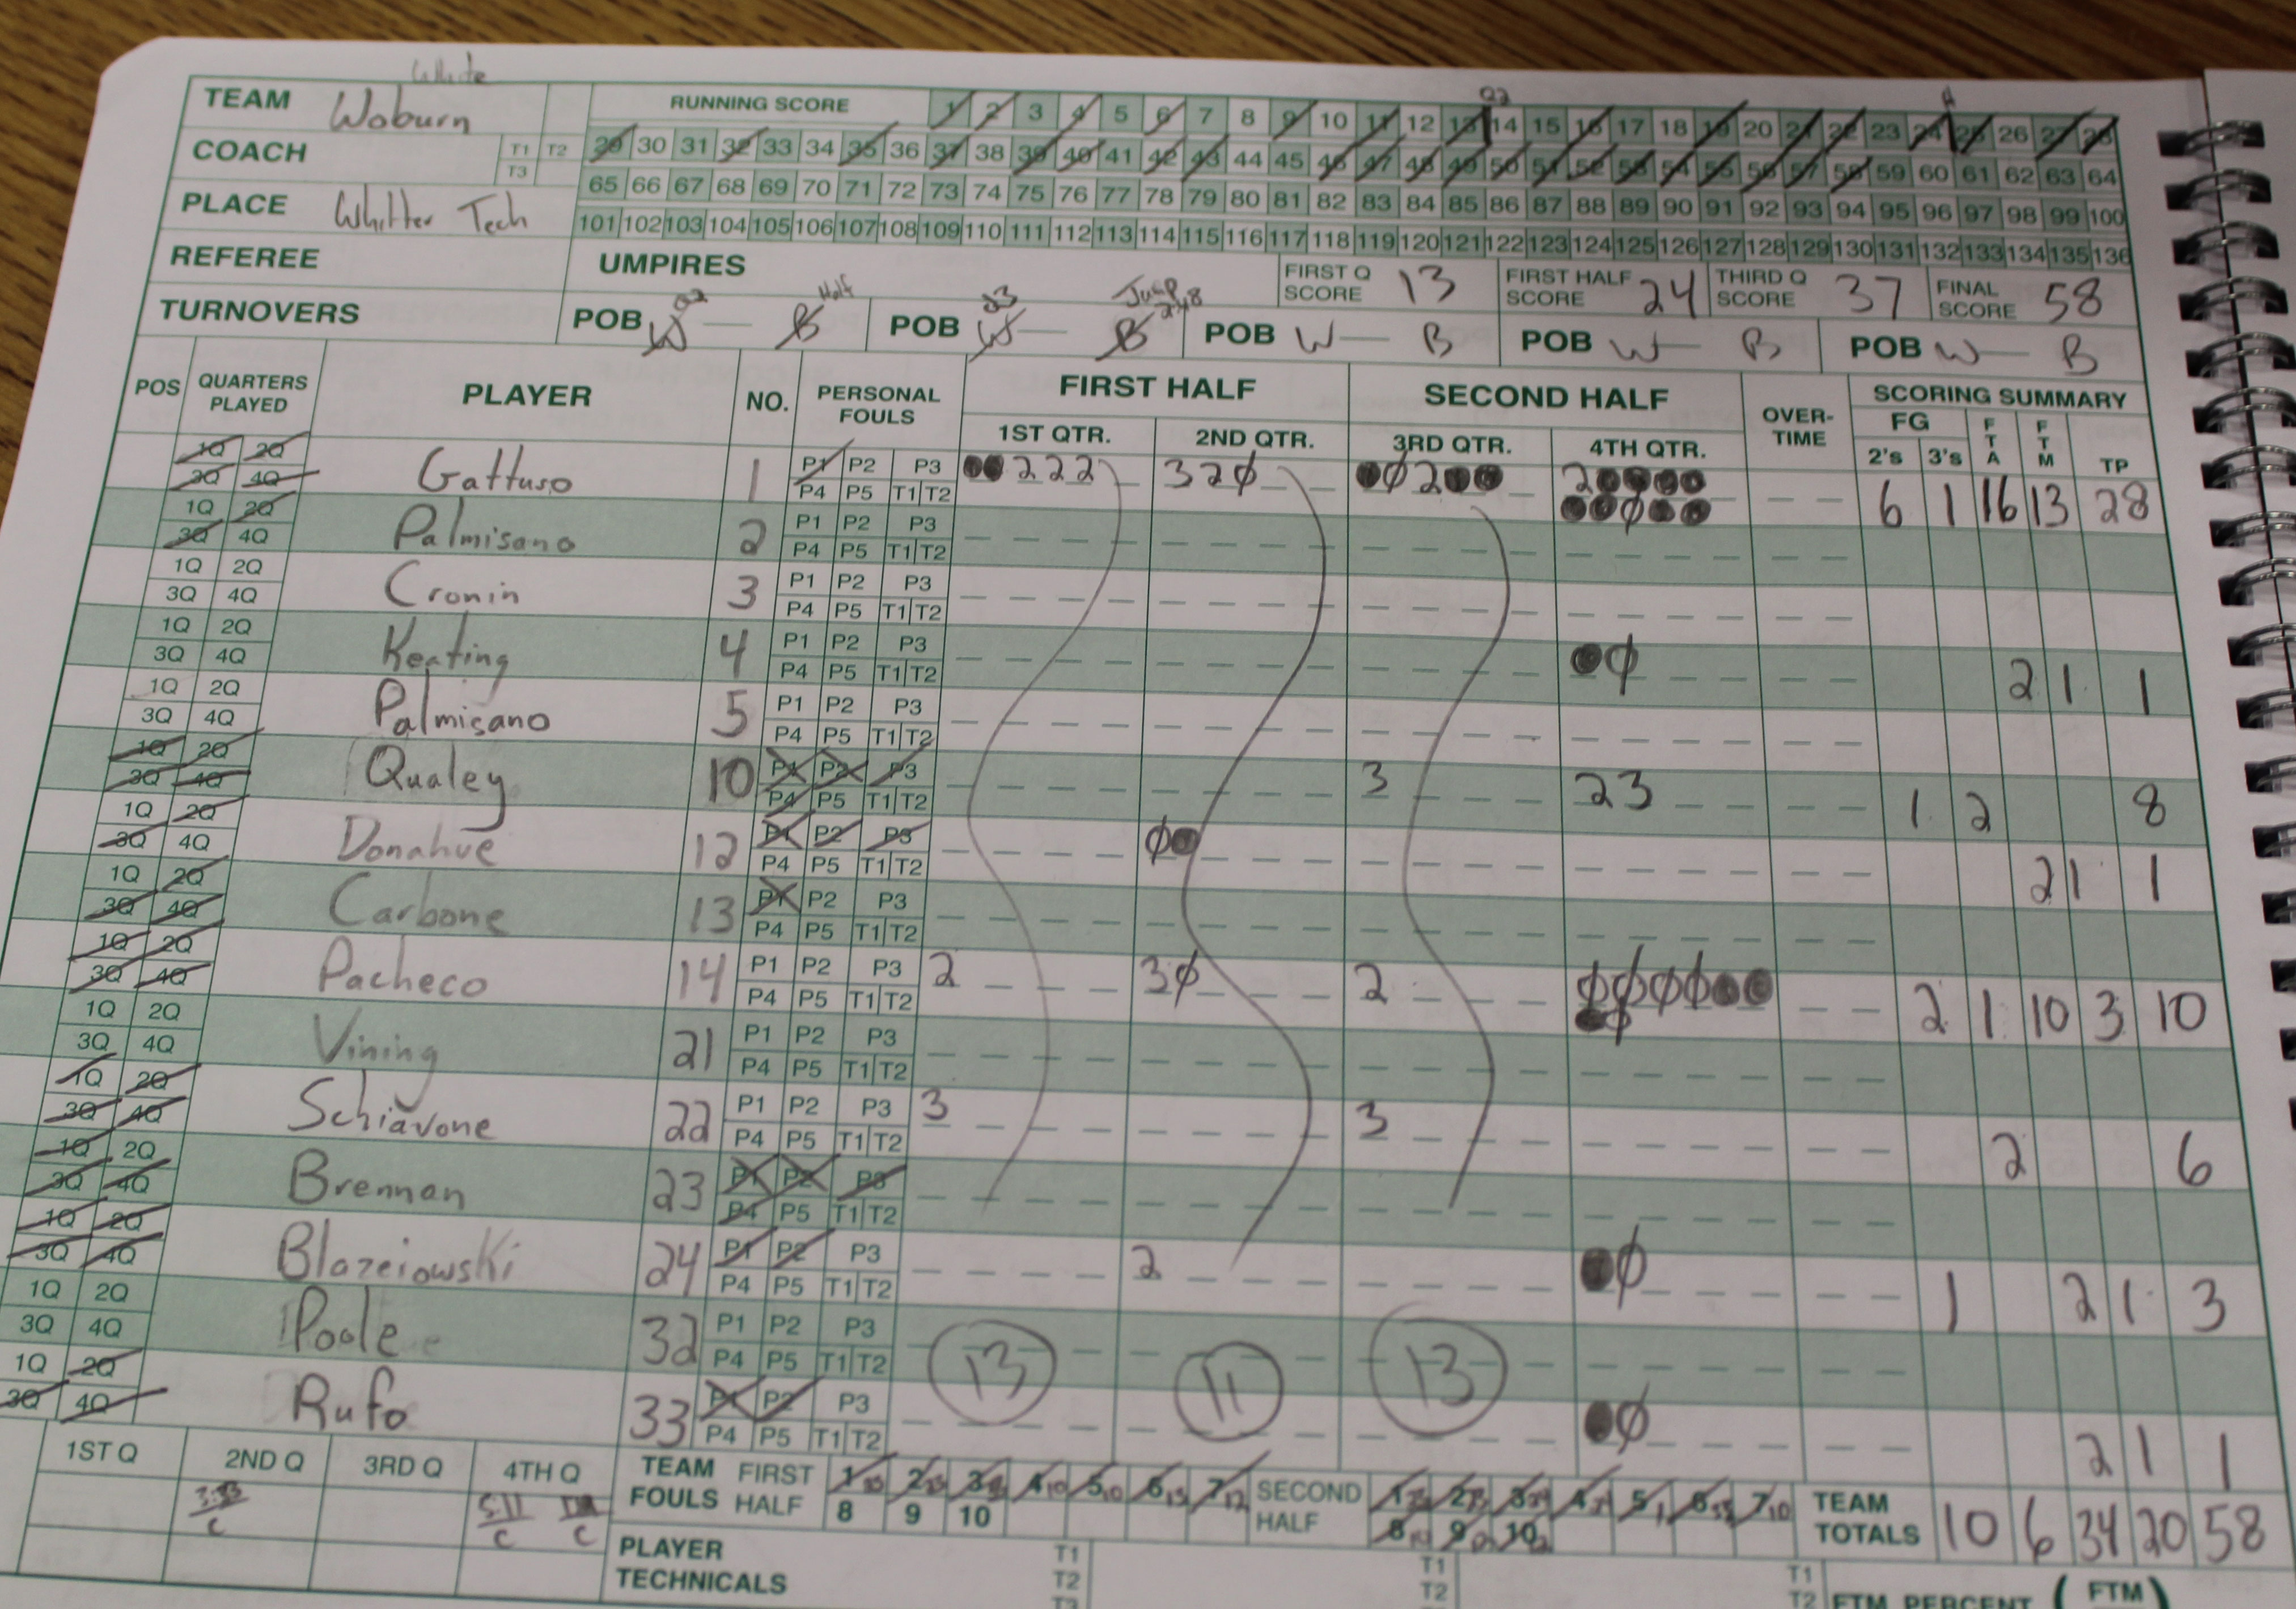 White
TEAM Woburn
RUNNING SCORE 1 2 3 4 5 6 7 8 9 10 11 12 13 14 15 16 17 18 19 20 21 22 23 24 25 26 27 28
Q2 H
COACH T1 T2 T3
29 30 31 32 33 34 35 36 37 38 39 40 41 42 43 44 45 46 47 48 49 50 51 52 53 54 55 56 57 58 59 60 61 62 63 64
65 66 67 68 69 70 71 72 73 74 75 76 77 78 79 80 81 82 83 84 85 86 87 88 89 90 91 92 93 94 95 96 97 98 99 100
PLACE Whitter Tech
101 102 103 104 105 106 107 108 109 110 111 112 113 114 115 116 117 118 119 120 121 122 123 124 125 126 127 128 129 130 131 132 133 134 135 136
REFEREE UMPIRES FIRST Q SCORE 13 FIRST HALF SCORE 24 THIRD Q SCORE 37 FINAL SCORE 58
Q2 Half Q3 Jump
TURNOVERS POB W — B POB W — B POB W — B POB W — B POB W — B
POS QUARTERS PLAYED PLAYER NO. PERSONAL FOULS FIRST HALF SECOND HALF OVER-TIME SCORING SUMMARY
1ST QTR. 2ND QTR. 3RD QTR. 4TH QTR. FG 2's 3's FTA FTM TP
1Q 2Q 3Q 4Q Gattuso 1 P1 P2 P3 P4 P5 T1 T2 ●●222 32Ø ●Ø2●● 2●●●● ●●Ø●● 6 1 16 13 28
1Q 2Q 3Q 4Q Palmisano 2 P1 P2 P3 P4 P5 T1 T2
1Q 2Q 3Q 4Q Cronin 3 P1 P2 P3 P4 P5 T1 T2
1Q 2Q 3Q 4Q Keating 4 P1 P2 P3 P4 P5 T1 T2 ●Ø 2 1 1
1Q 2Q 3Q 4Q Palmisano 5 P1 P2 P3 P4 P5 T1 T2
1Q 2Q 3Q 4Q Qualey 10 P1 P2 P3 P4 P5 T1 T2 3 23 1 2 8
1Q 2Q 3Q 4Q Donahue 12 P1 P2 P3 P4 P5 T1 T2 Ø● 2 1 1
1Q 2Q 3Q 4Q Carbone 13 P1 P2 P3 P4 P5 T1 T2
1Q 2Q 3Q 4Q Pacheco 14 P1 P2 P3 P4 P5 T1 T2 2 3Ø 2 ØØØØ●● ●Ø 2 1 10 3 10
1Q 2Q 3Q 4Q Vining 21 P1 P2 P3 P4 P5 T1 T2
1Q 2Q 3Q 4Q Schiavone 22 P1 P2 P3 P4 P5 T1 T2 3 3 2 6
1Q 2Q 3Q 4Q Brennan 23 P1 P2 P3 P4 P5 T1 T2
1Q 2Q 3Q 4Q Blazeiowski 24 P1 P2 P3 P4 P5 T1 T2 2 ●Ø 1 2 1 3
1Q 2Q 3Q 4Q Poole 32 P1 P2 P3 P4 P5 T1 T2 13 11 13
1Q 2Q 3Q 4Q Rufo 33 P1 P2 P3 P4 P5 T1 T2 ●Ø 2 1 1
1ST Q 2ND Q 3RD Q 4TH Q TEAM FOULS FIRST HALF 1 2 3 4 5 6 7 8 9 10 SECOND HALF 1 2 3 4 5 6 7 8 9 10 TEAM TOTALS 10 6 34 20 58
C 5:11 C C
PLAYER TECHNICALS T1 T2 T1 T2 T1 T2
FTM PERCENT (FTM)